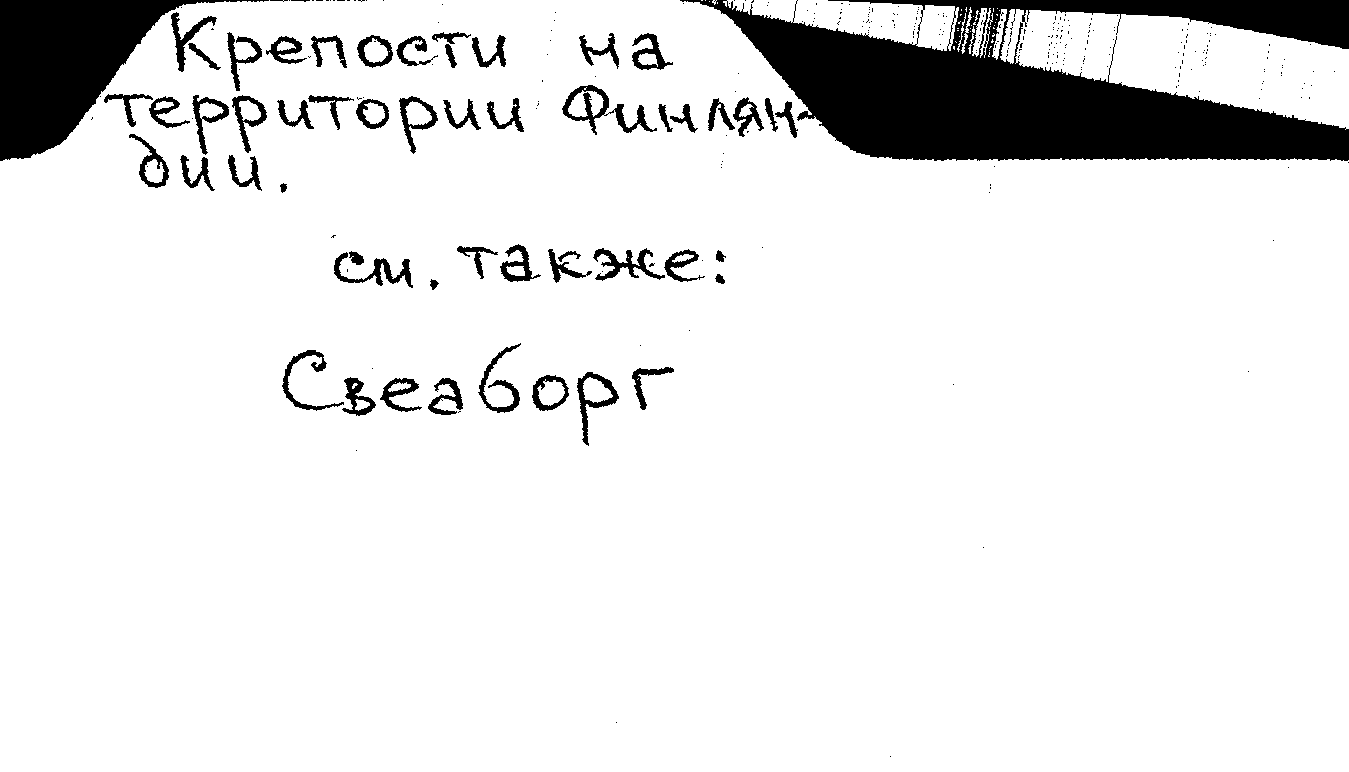 Крепости на
территории Финлян-
дии.
см. также:
Свеаборг